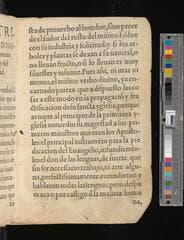 sta de prouecho al hombre, sino prece
de el sudor del rostro del mismo hōbre
con su industria y solicitud: y si los ar
boles y plantas se dexan a su natural, o
no lleuan fructo, o si lo lleuan es muy
siluestre y insuaue. Pues assi, ni mas ni
menos, el mismo verbo diuino, y en-
carnado parece que a dispuesto las co
sas a este modo en la propagacio y fru
dificacion desta sancta yglesia, porque
aunque al principio de la primitiua y-
glesia concedio su magestad a sus pri-
meros ministros que eran los Aposto-
les el principal instrumēto para la pre
dicacion del Euangelio, infundiendo-
les el don de las lenguas, de suerte que
sin ser necessario trabajo, ni arte algu-
na, perfectissimamente entendieron y
hablaron todas las lenguas, pero despu
es aca o por castigo d la malicia huma
na,